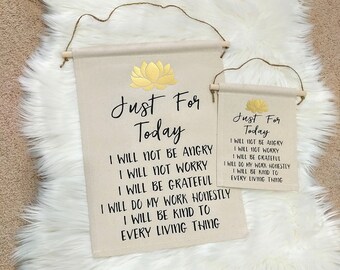 Just For
Today
I WILL NOT BE ANGRY
I WILL NOT WORRY
I WILL BE GRATEFUL
I WILL DO MY WORK HONESTLY
I WILL BE KIND TO
EVERY LIVING THING
Just For
Today
I WILL NOT BE ANGRY
I WILL NOT WORRY
I WILL BE GRATEFUL
I WILL DO MY WORK HONESTLY
I WILL BE KIND TO
EVERY LIVING THING